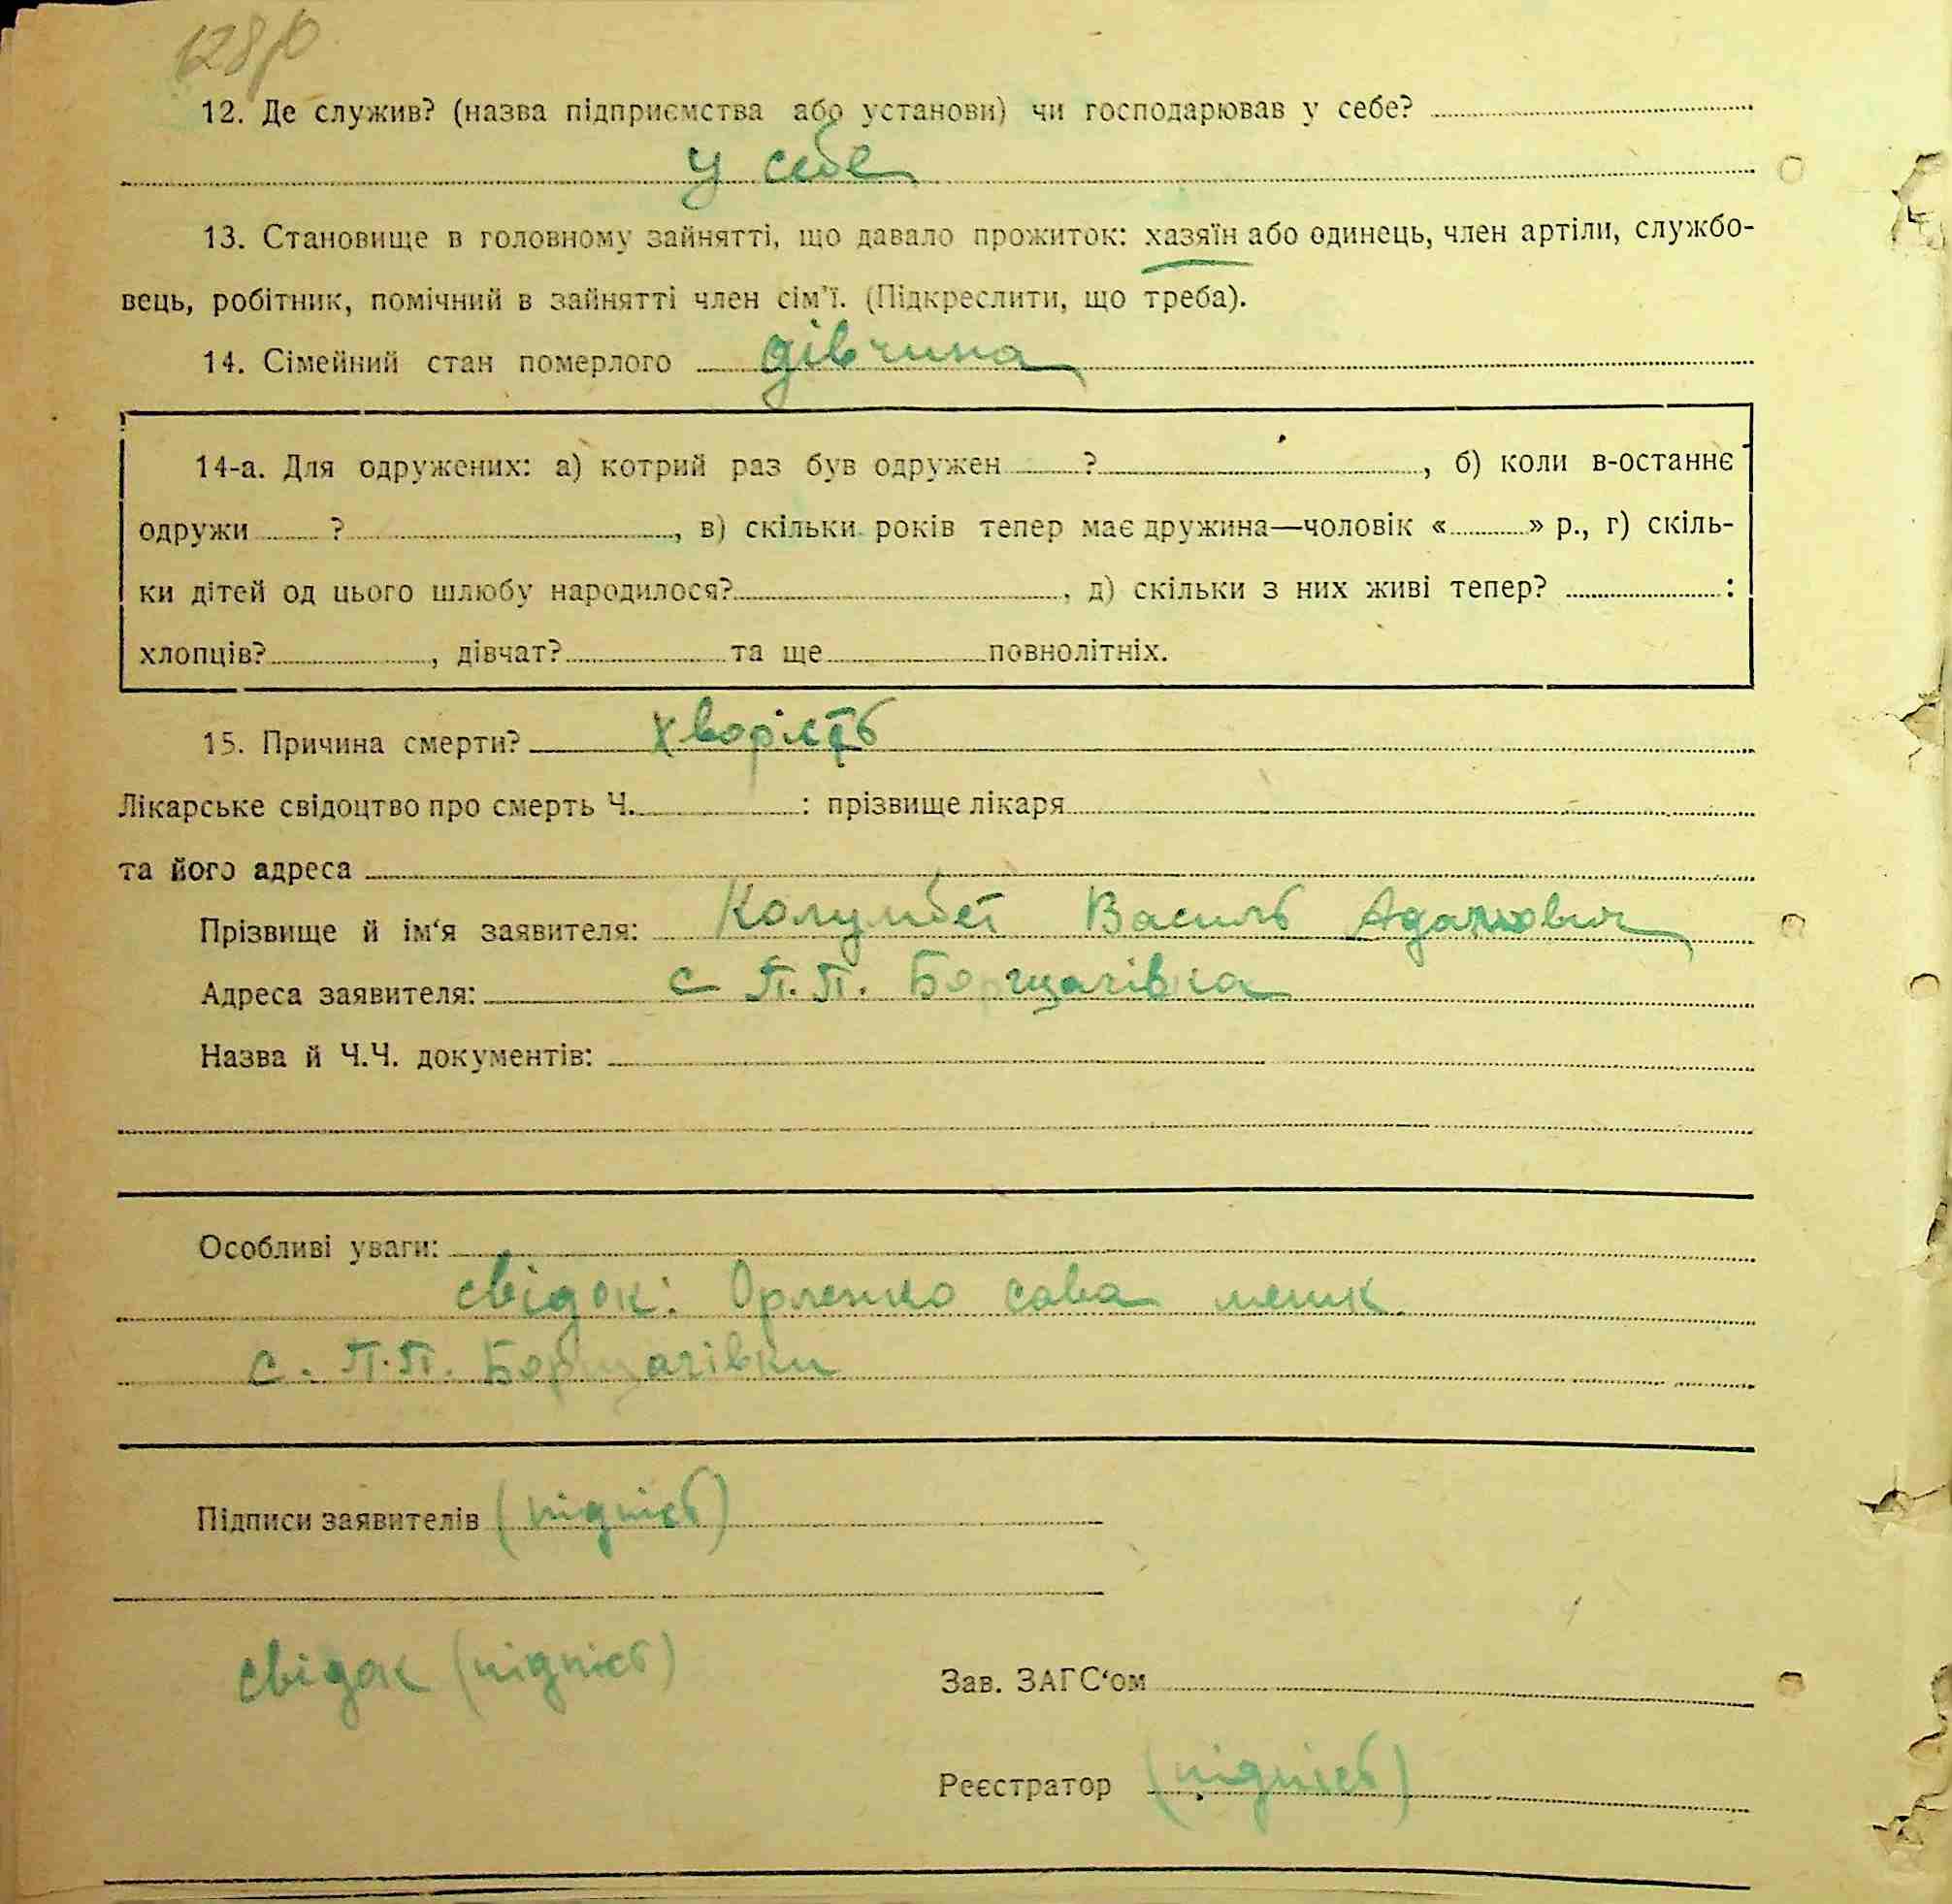 128
12. Де служив? (назва підприємства або установи) чи господарював у себе?
у себе
13. Становище в головному зайнятті, що давало прожиток: хазяїн або одинець, член артіли, службо-
вець, робітник, помічний в зайнятті член сім'ї. (Підкреслити, що треба).
14. Сімейний стан померлого дівчина
14-а. Для одружених: а) котрий раз був одружен ? , б) коли в-останнє
одружи ? , в) скільки років тепер має дружина—чоловік « » р., г) скіль-
ки дітей од цього шлюбу народилося? , д) скільки з них живі тепер? :
хлопців? , дівчат? та ще повнолітніх.
15. Причина смерти? хворість
Лікарське свідоцтво про смерть Ч. : прізвище лікаря
та його адреса
Прізвище й ім'я заявителя: Колумбет Василь Адамович
Адреса заявителя: с П.П. Борщагівка
Назва й Ч.Ч. документів:
Особливі уваги:
свідок: Орленко сава мешк.
с. П.П. Борщагівки
Підписи заявителів (підпісь)
свідок (підпісь)
Зав. ЗАГС'ом
Реєстратор (підпісь)